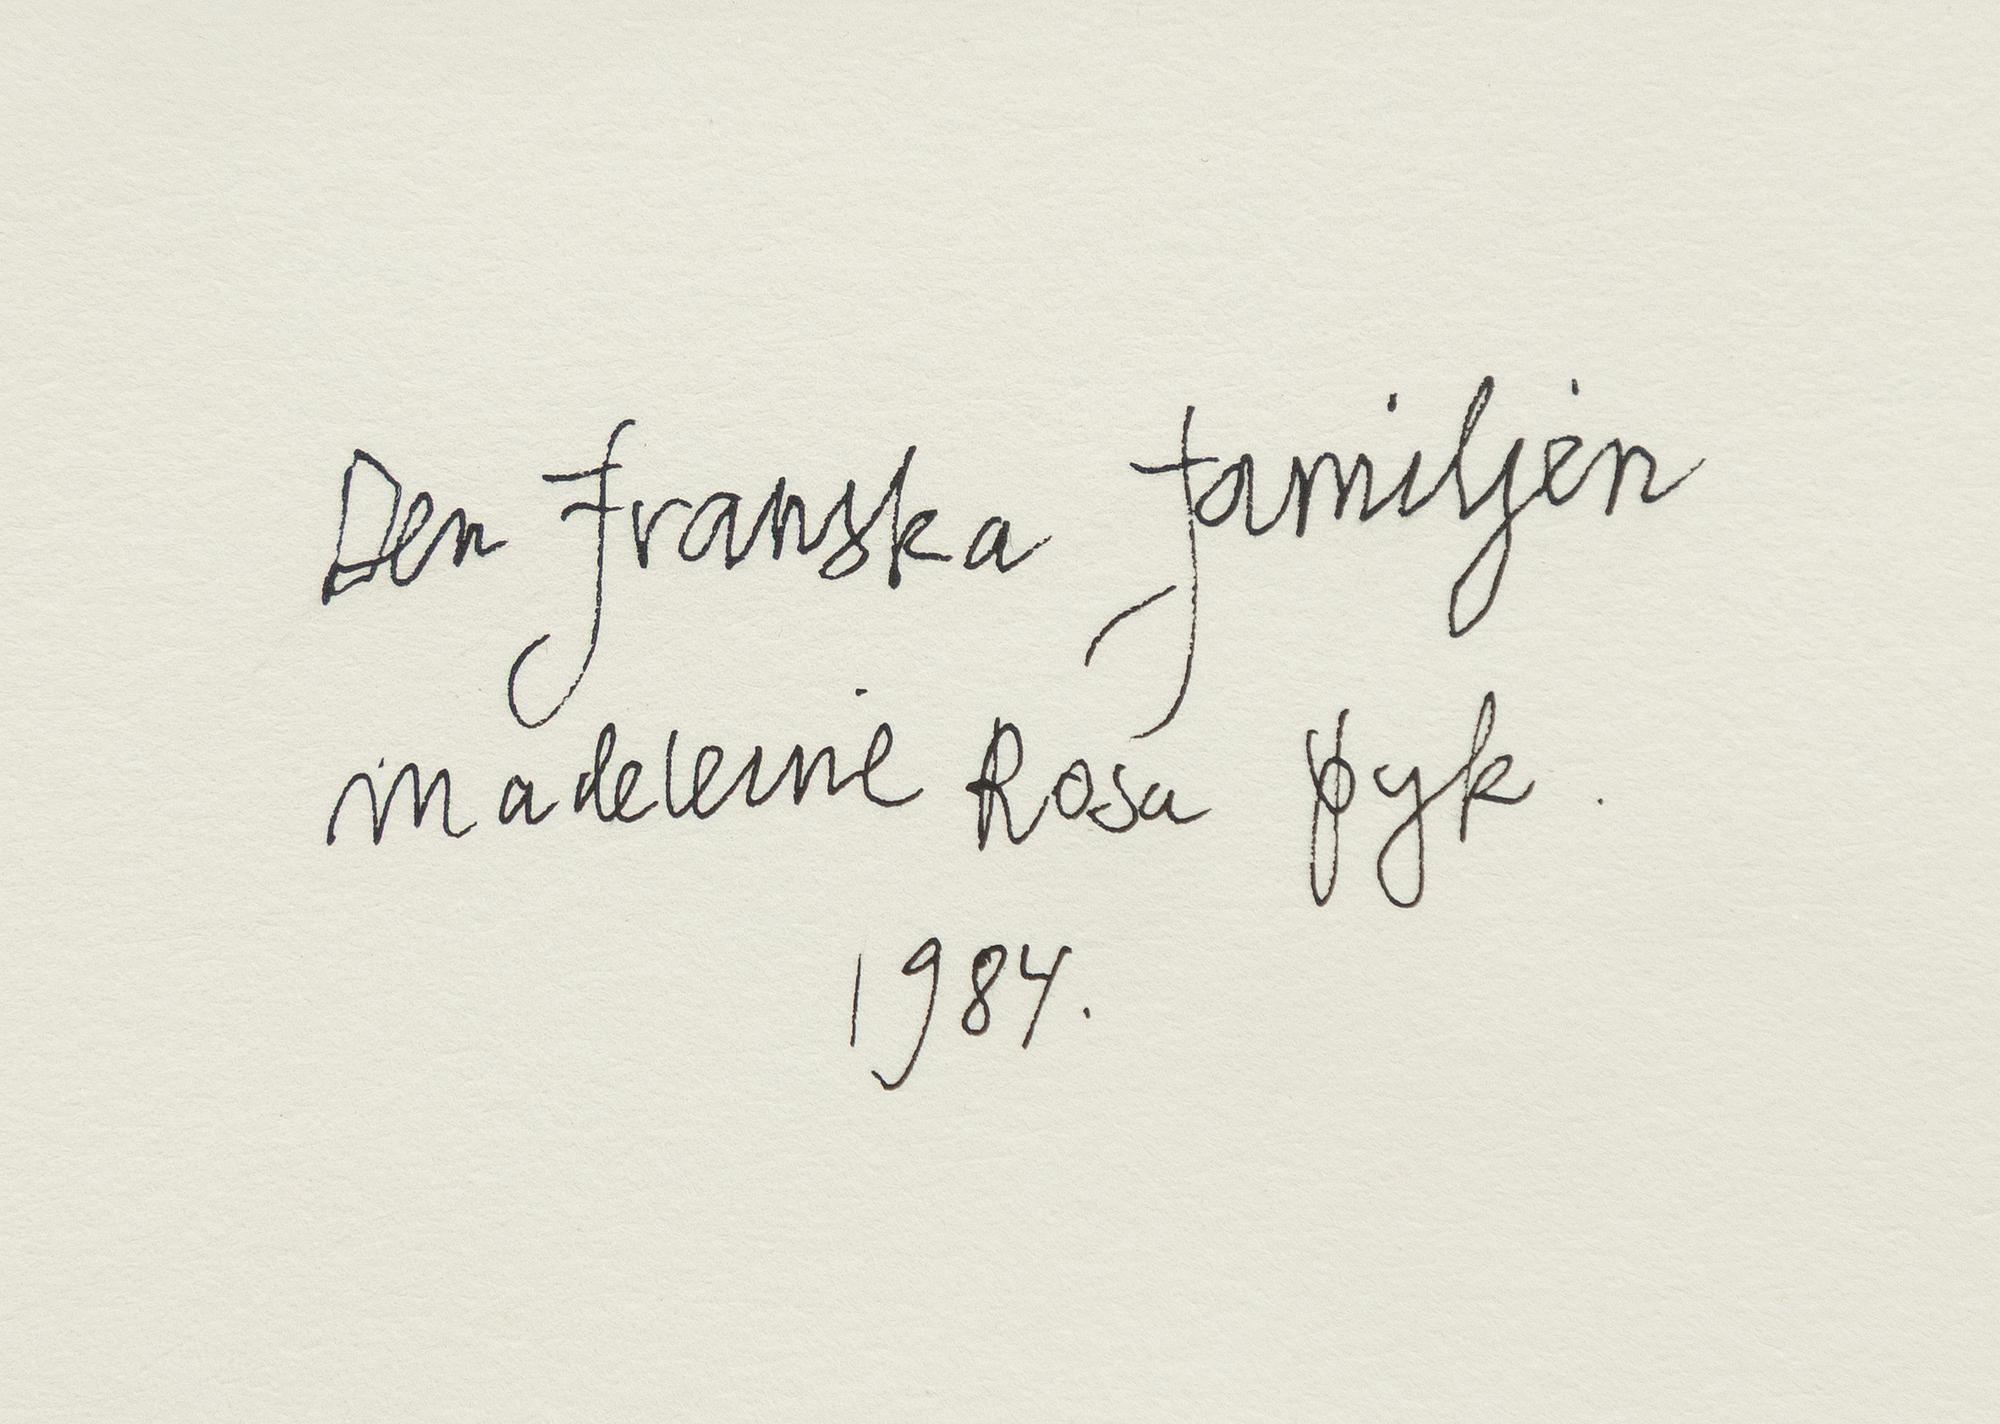 Den franska familjen
Madeleine Rosa Pyk.
1984.